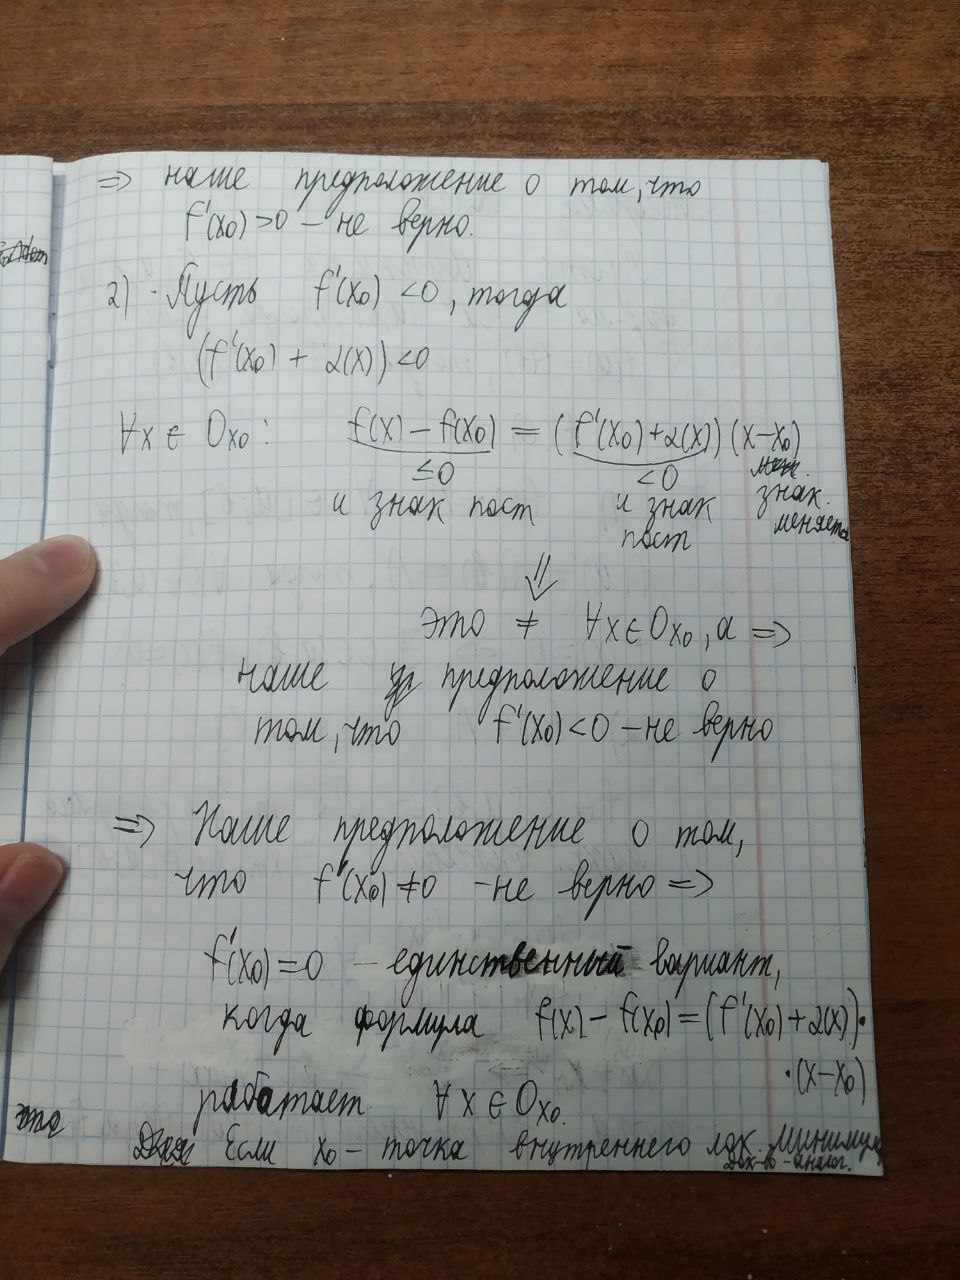 ⇒ наше предположение о том, что
f'(x₀) > 0 – не верно.
2) · Пусть f'(x₀) < 0, тогда
(f'(x₀) + α(x)) < 0
∀x ∈ Oₓ₀: f(x) – f(x₀) = (f'(x₀) + α(x)) (x–x₀)
≤0 <0
и знак пост и знак пост знак. меняется
⇓
это ≠ ∀x ∈ Oₓ₀, а ⇒
наше предположение о
том, что f'(x₀) < 0 – не верно
⇒ Наше предположение о том,
что f'(x₀) ≠ 0 – не верно ⇒
f'(x₀) = 0 – единственный вариант,
когда формула f(x) – f(x₀) = (f'(x₀) + α(x)) ·
· (x–x₀)
работает ∀x ∈ Oₓ₀.
Если x₀ – точка внутреннего лок. минимума
док-во – аналог.